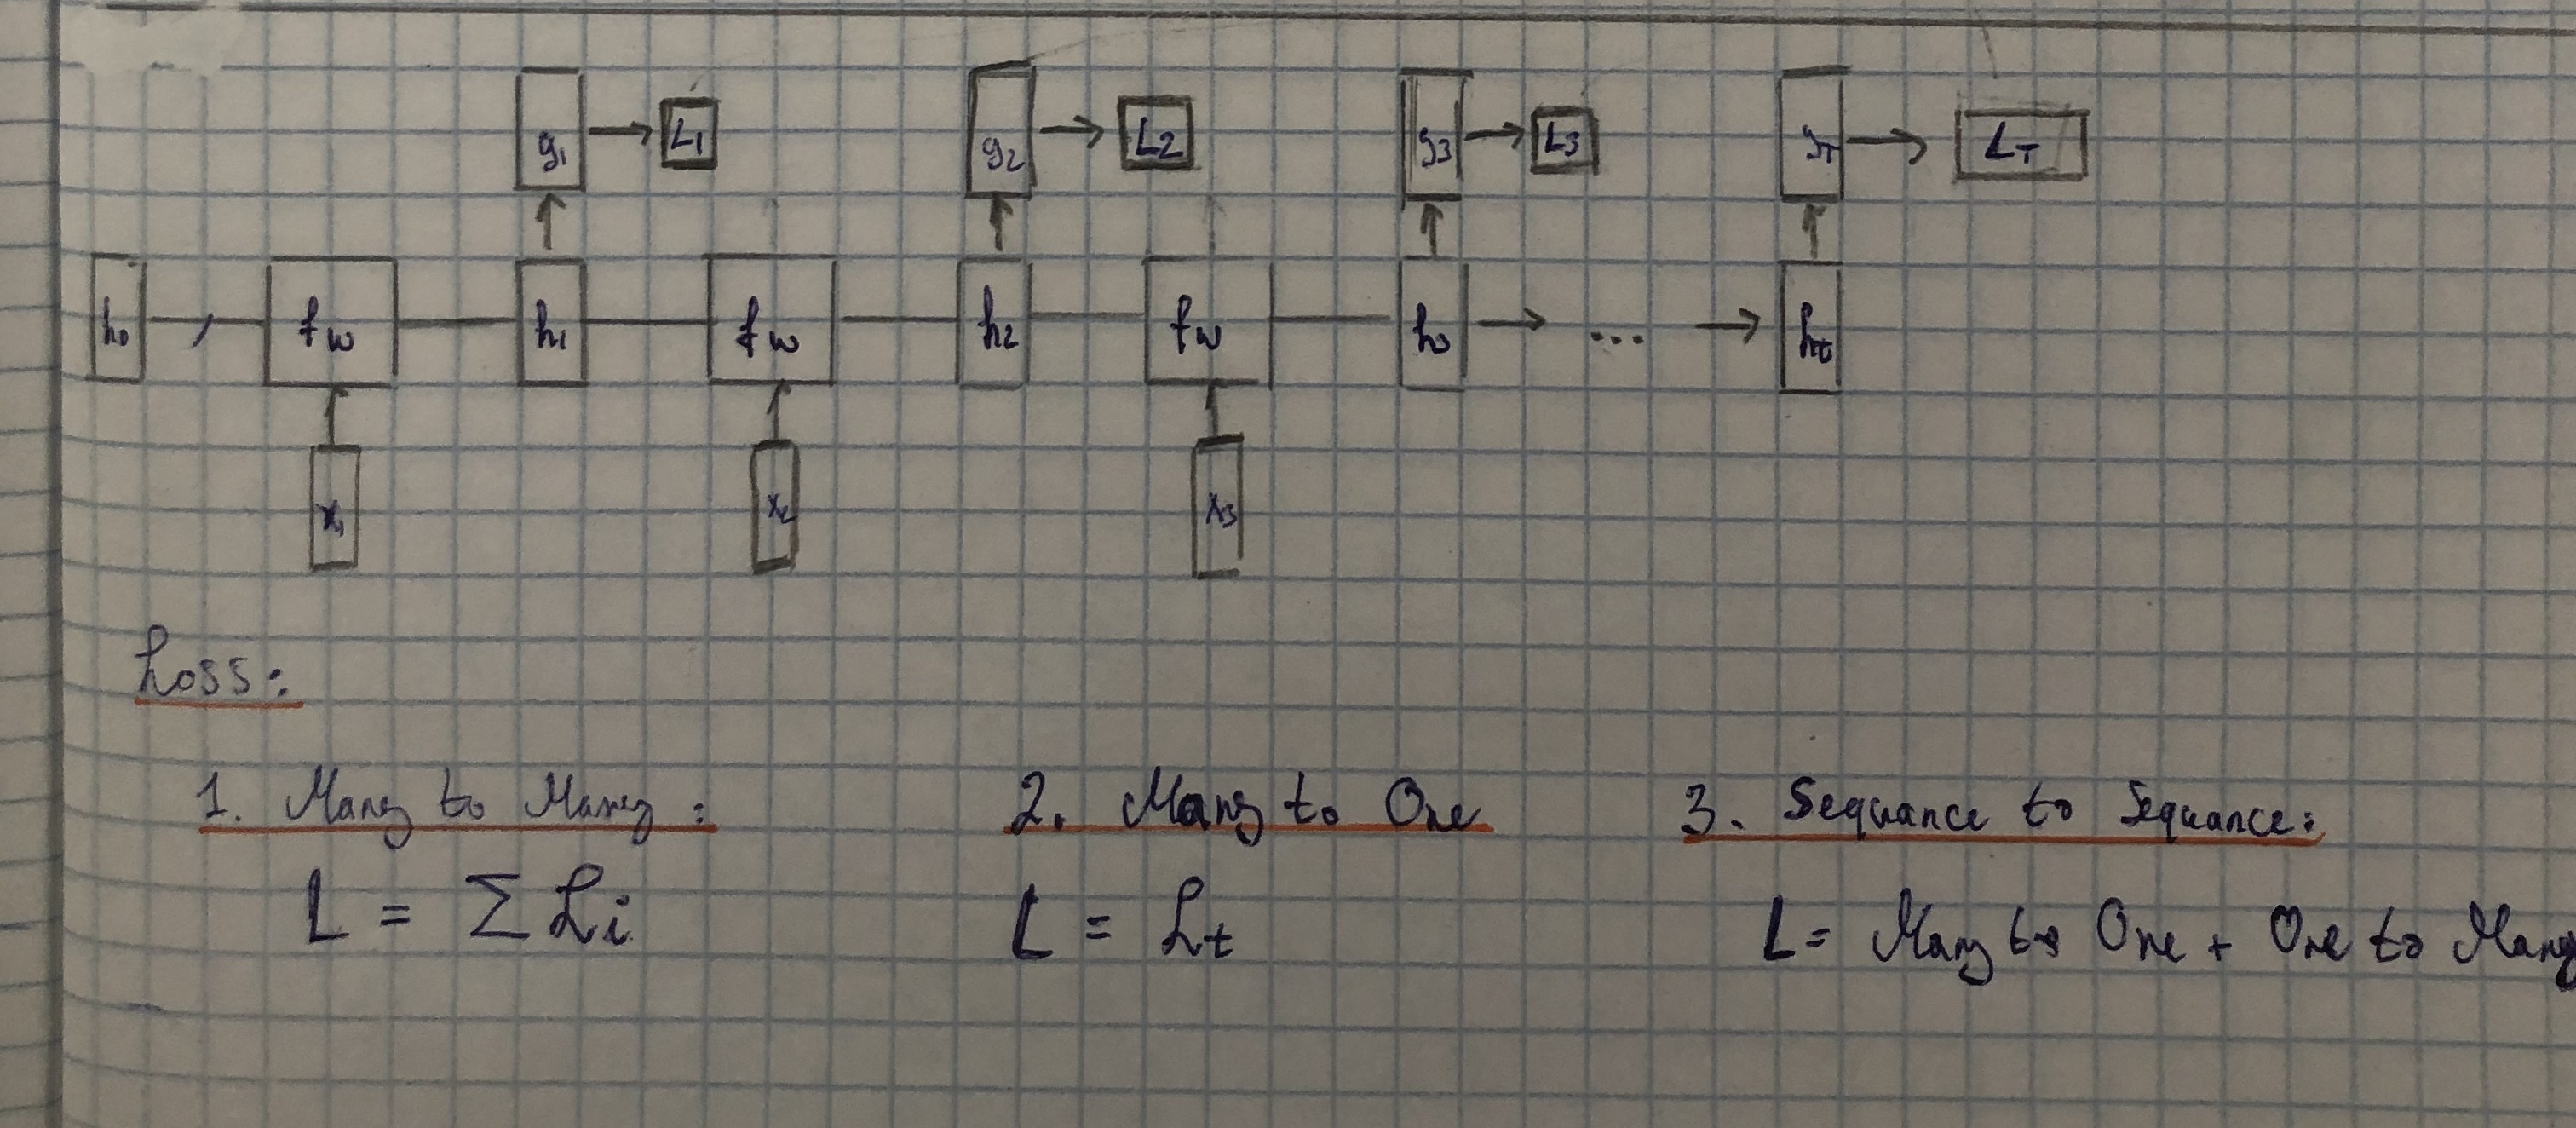 y₁ L₁ y₂ L₂ y₃ L₃ y_T L_T
h₀ f_w h₁ f_w h₂ f_w h₃ ... h_t
x₁ x₂ x₃
Loss:
1. Many to Many: 2. Many to One 3. Sequance to Sequance:
L = Σ Li L = Lt L = Many to One + One to Many